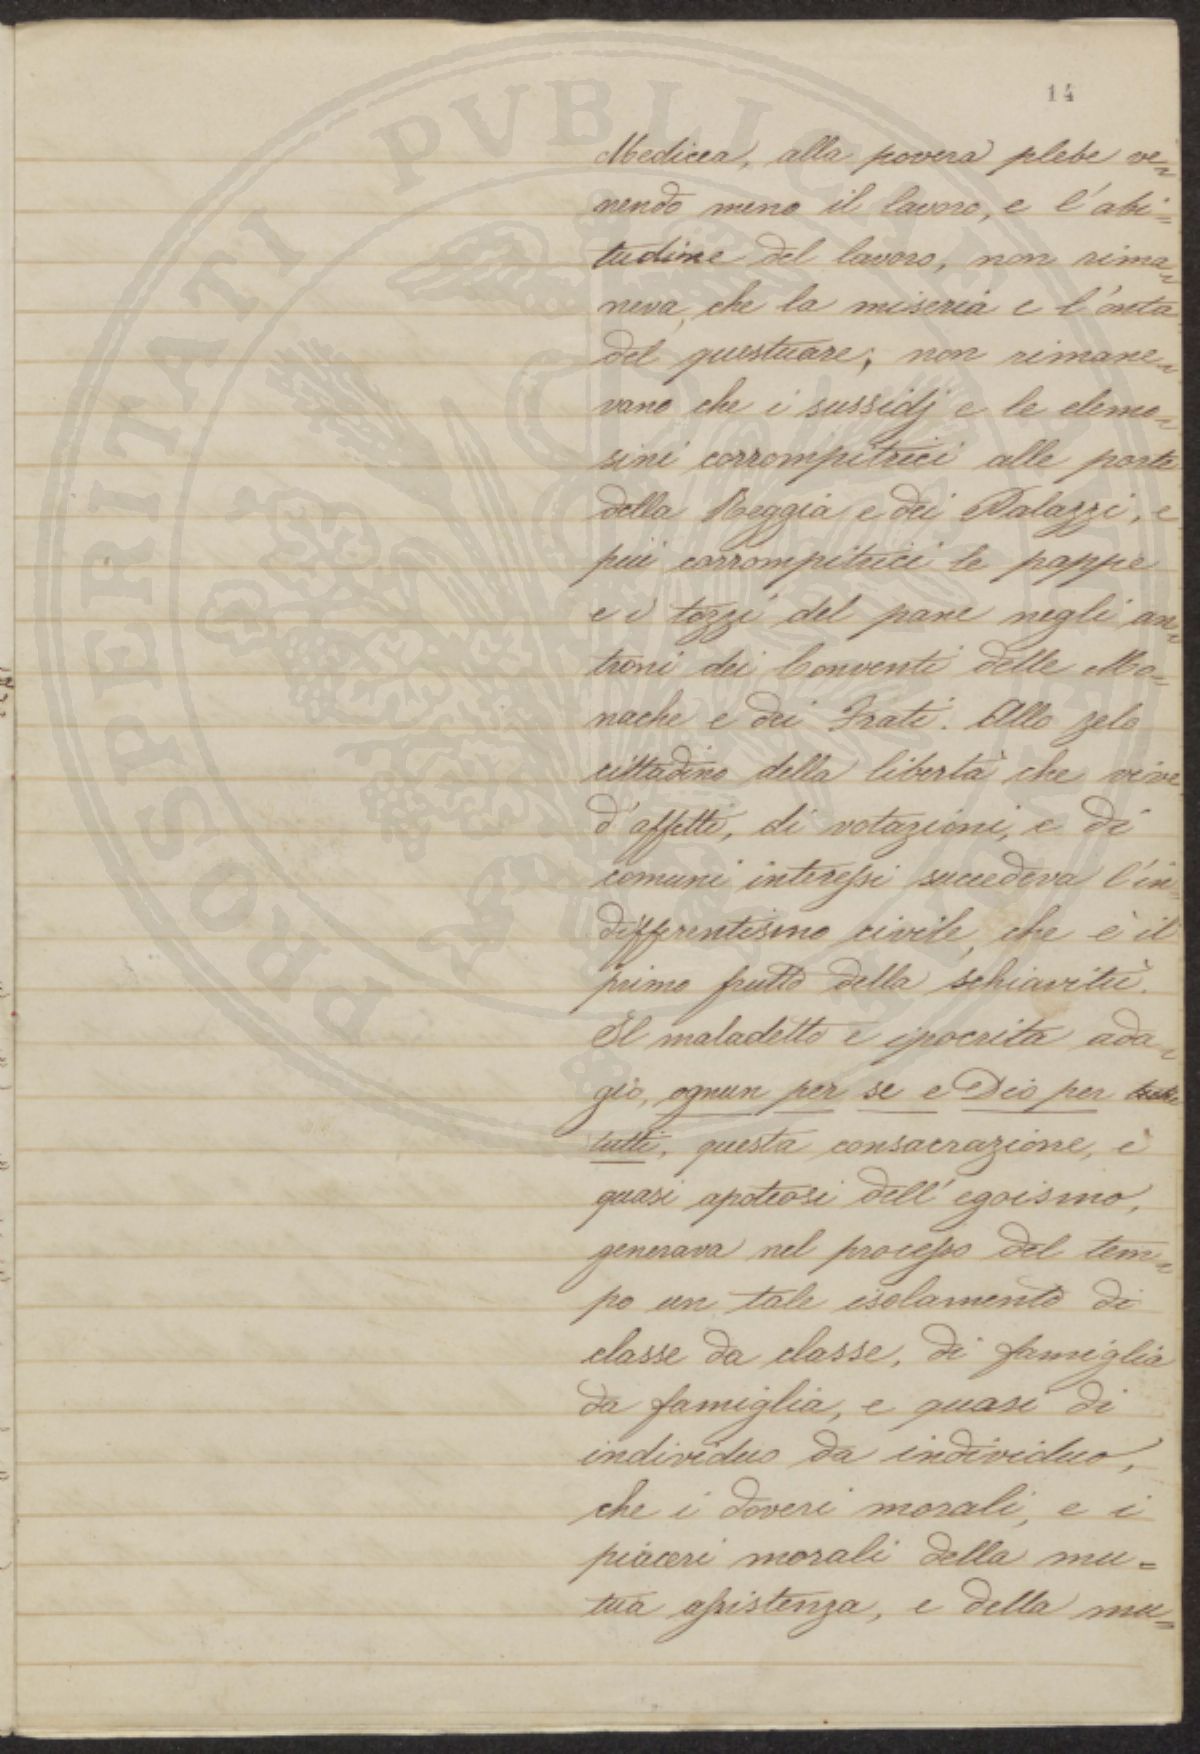 14
Medicea, alla povera plebe ve=
nendo meno il lavoro, e l'abi=
tudine del lavoro, non rima=
neva che la miseria e l'onta
del questuare; non rimane=
vano che i sussidj e le elemo=
sini corrompitrici alle porte
della Reggia e dei Palazzi, e
più corrompitrici le pappe
e i tozzi del pane negli an=
troni dei Conventi delle Mo=
nache e dei Frati. Allo zelo
cittadino della libertà che vive
d'affetti, di votazioni, e di
comuni interessi succedeva l'in=
differentismo civile, che è il
primo frutto della schiavitù.
Il maladetto e ipocrita ada=
gio, ognun per se e Dio per
tutti, questa consacrazione, e
quasi apoteosi dell'egoismo,
generava nel processo del tem=
po un tale isolamento di
classe da classe, di famiglia
da famiglia, e quasi di
individuo da individuo,
che i doveri morali, e i
piaceri morali della mu=
tua assistenza, e della mu=
PROSPERITATI PVBLICAE